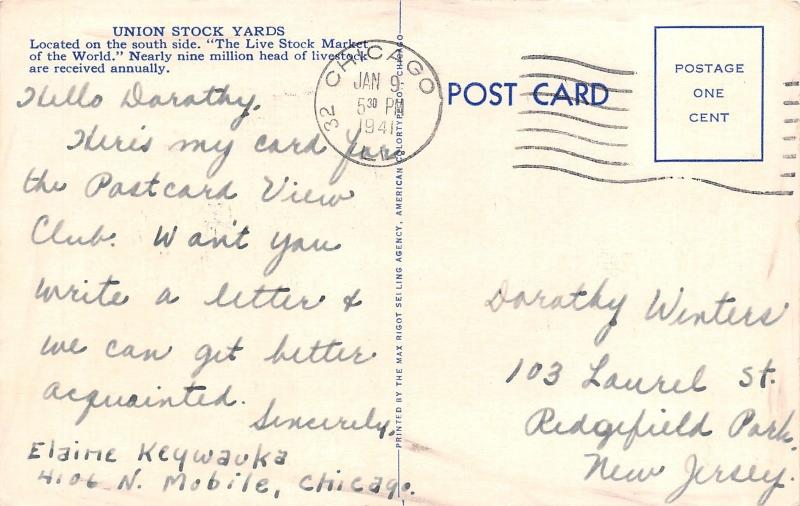 UNION STOCK YARDS
Located on the south side. "The Live Stock Market
of the World." Nearly nine million head of livestock
are received annually.
Hello Dorothy,
Here's my card for
the Postcard View
Club. Won't you
write a letter &
we can get better
acquainted.
Sincerely,
Elaine Keywauka
4106 N. Mobile, Chicago.
PRINTED BY THE MAX RIGOT SELLING AGENCY, AMERICAN COLORTYPE CO., CHICAGO
CHICAGO
32
JAN 9
5 30 PM
1941
ILL.
POST CARD
POSTAGE
ONE
CENT
Dorothy Winters
103 Laurel St.
Ridgefield Park,
New Jersey.